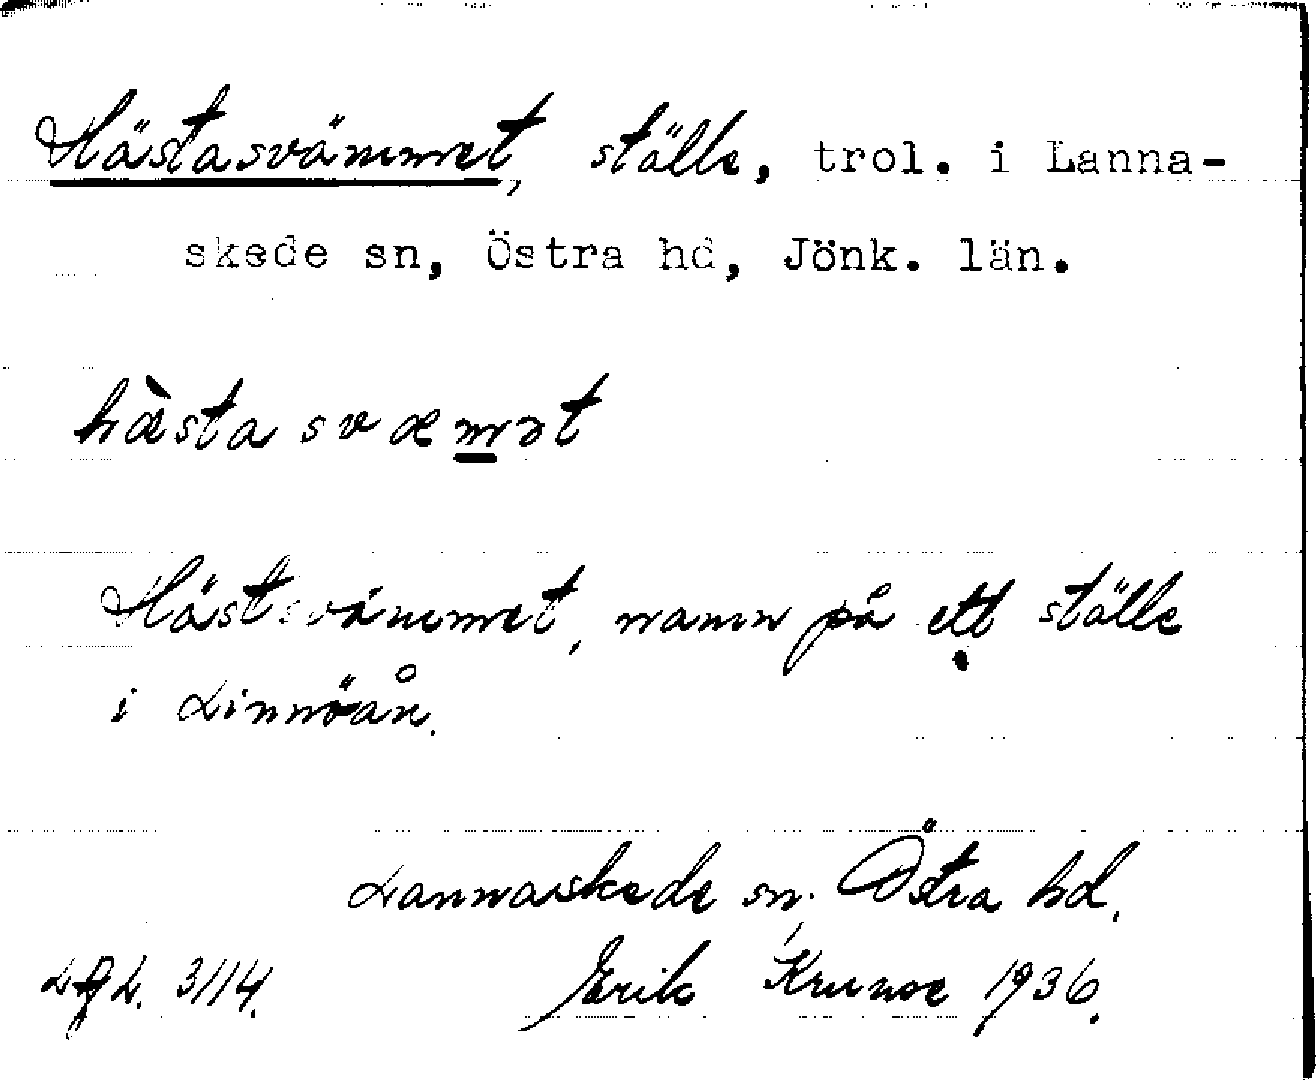 Hästasvämmet, ställe, trol. i Lanna-
skede sn, Östra hd, Jönk. län.
hæ̀stasvæm̲ət
Hästsvämmet, namn på ett ställe
i Linnöån.
Lannaskede sn. Östra hd.
L f L. 3114. Erik 1936.